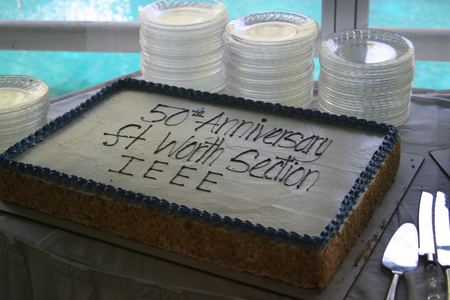 50th Anniversary
ft Worth Section
IEEE